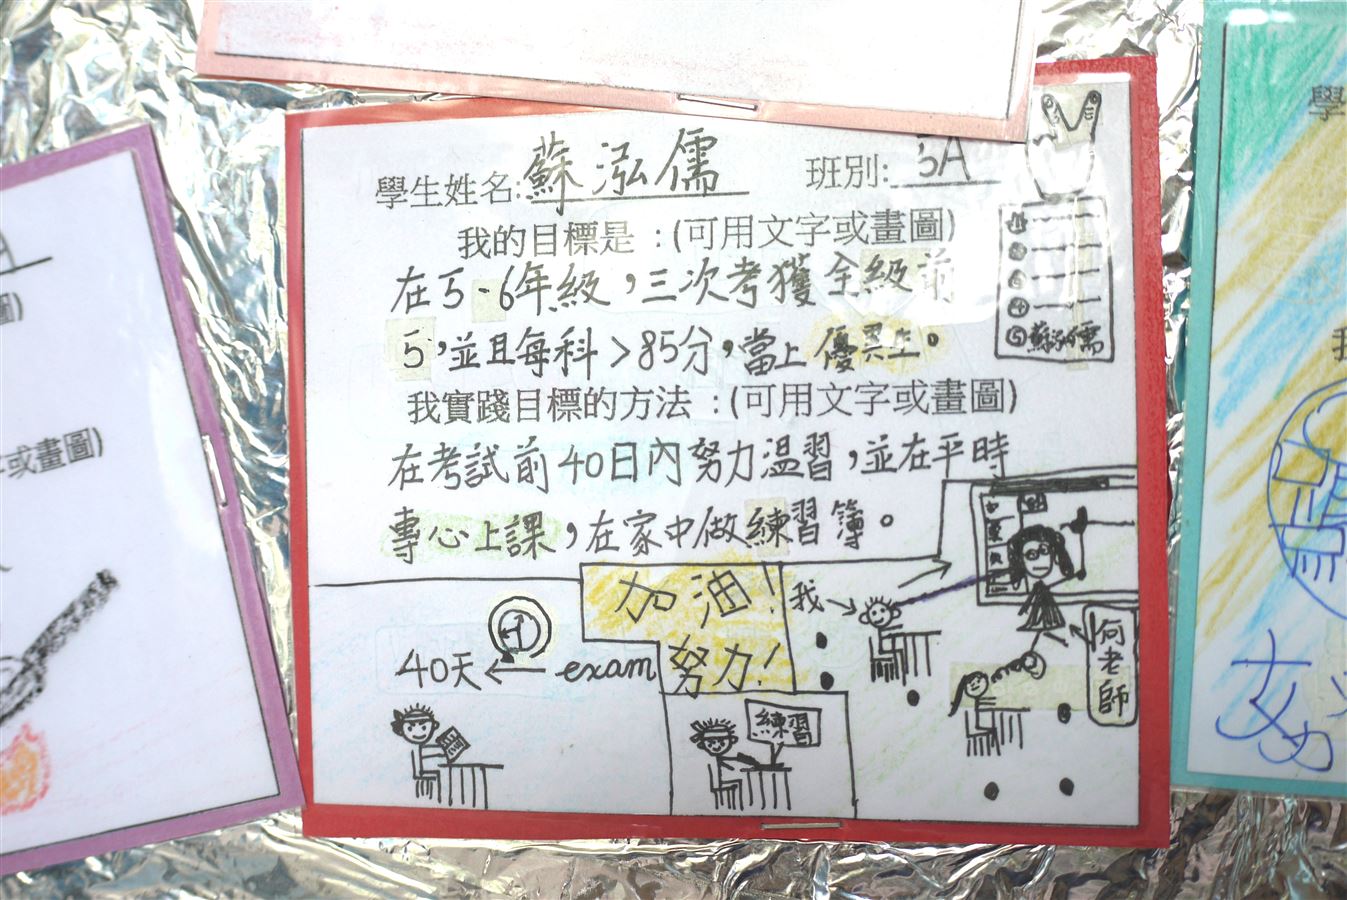 學生姓名:蘇泓儒 班別:5A
我的目標是：(可用文字或畫圖)
在5-6年級，三次考獲全級前
5，並且每科>85分，當上優異生。
⑤蘇泓儒
我實踐目標的方法：(可用文字或畫圖)
在考試前40日內努力溫習，並在平時
專心上課，在家中做練習簿。
加油！
努力！
我
何老師
40天 ← exam
練習
或畫圖)